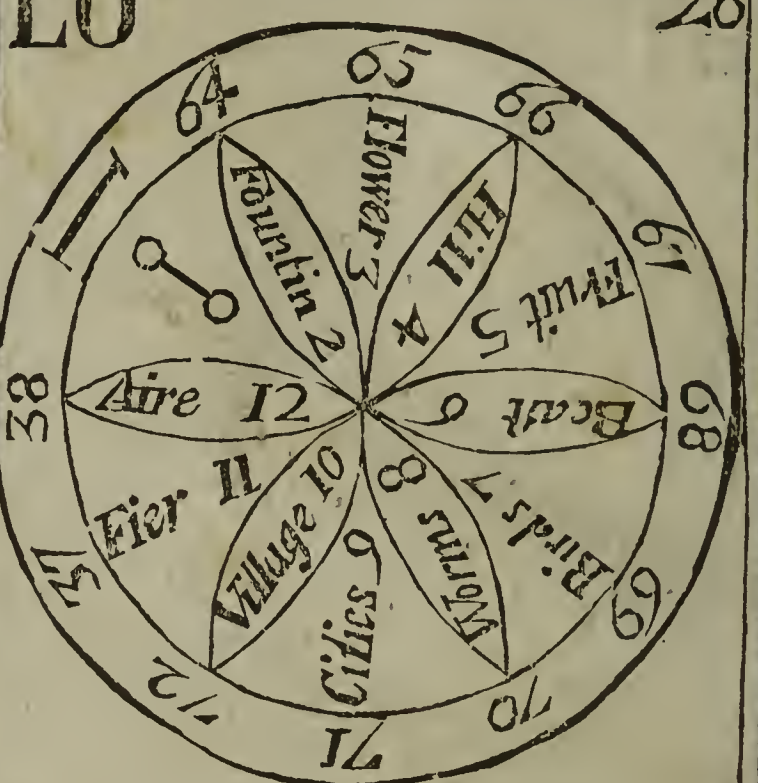 I
64
65
66
67
68
69
70
71
72
37
38
Fountin 2
Flower 3
Hill 4
Fruit 5
Beast 6
Birds 7
Worms 8
Cities 9
Village 10
Fier 11
Aire 12